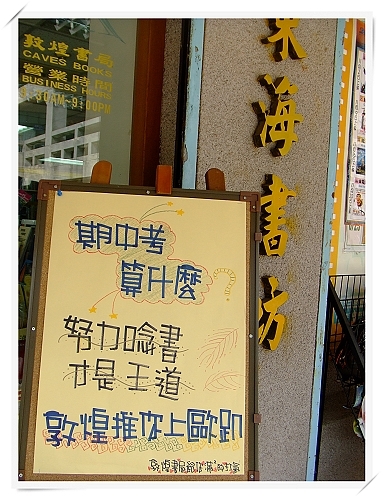 敦煌書局
CAVES BOOKS
營業時間
BUSINESS HOURS
:30AM~9:00PM
東海書坊
期中考
算什麼
努力唸書
才是王道
敦煌推你上歐趴
敦煌書局給 的打氣